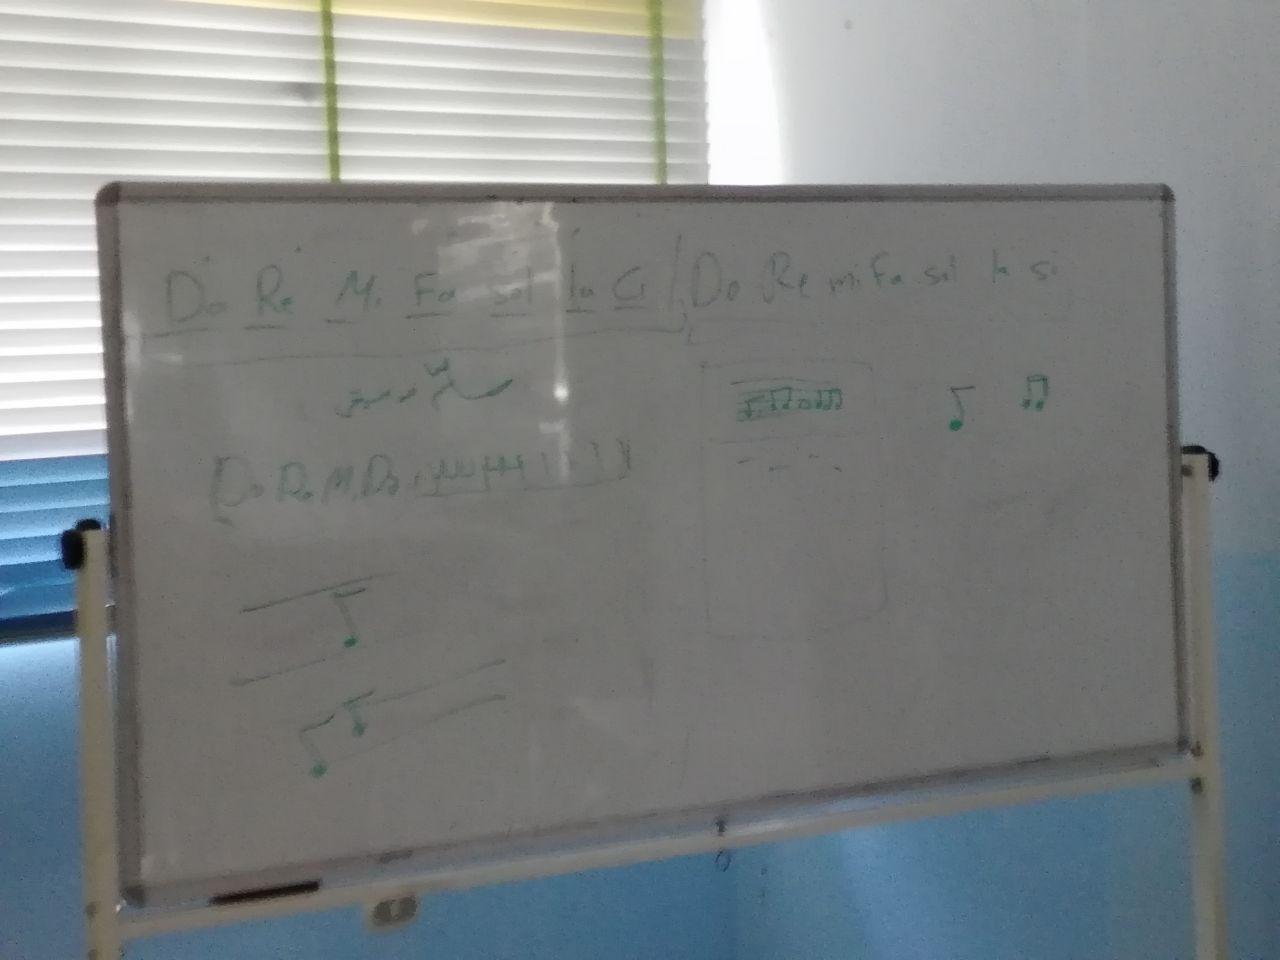 Do Re Mi Fa sol la Ci / Do Re mi Fa sol la si
Do Do Mi Do